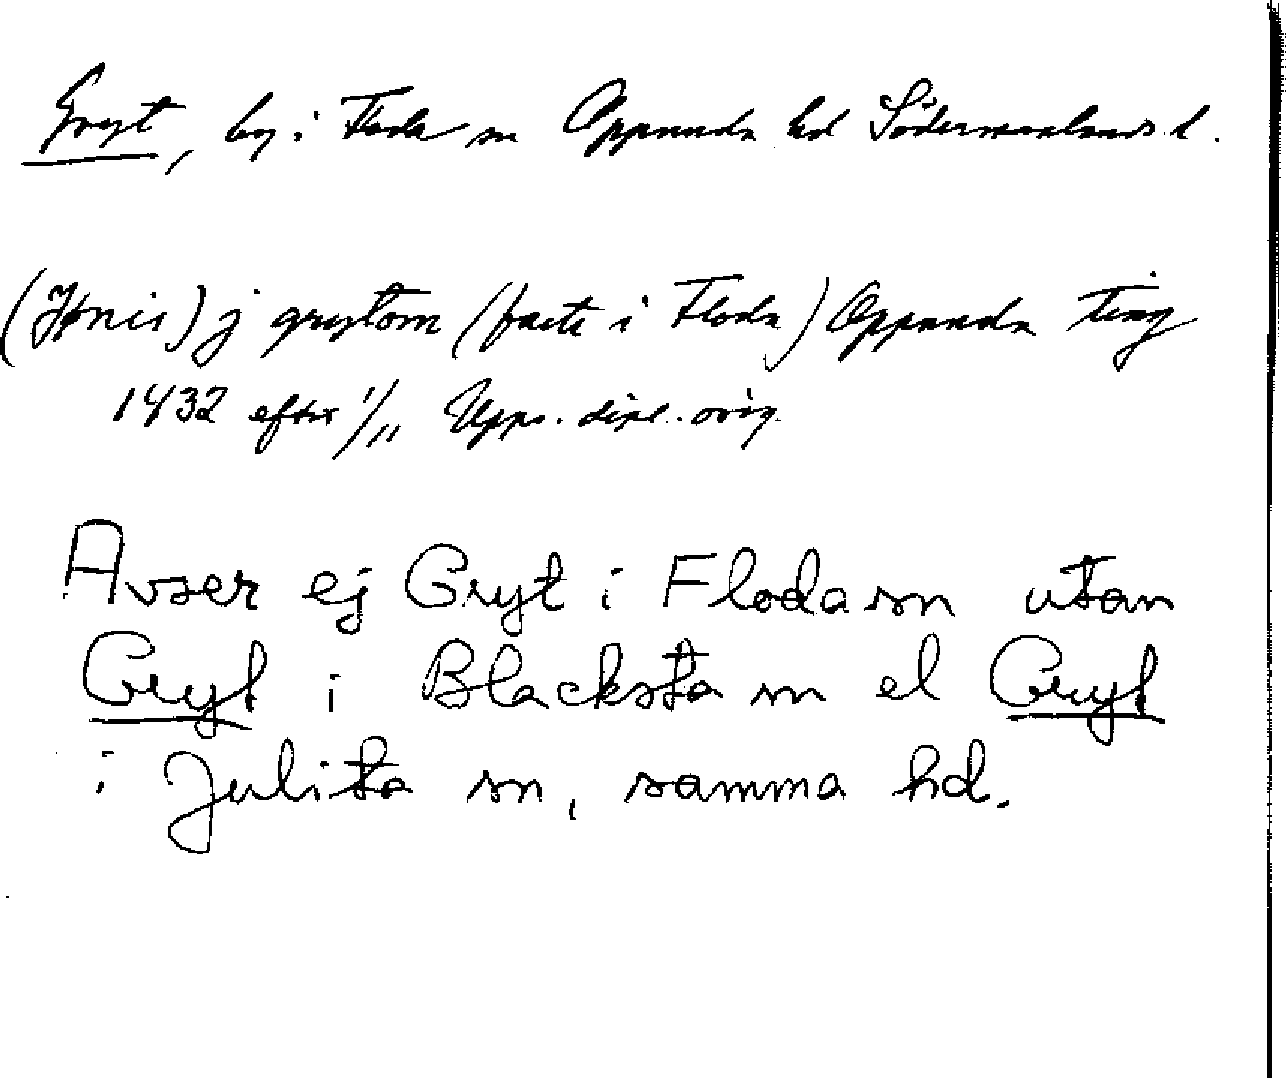 Gryt, by i Floda sn Oppunda hd Södermanlands l.
(Jönis) j grytom (faste i Floda) Oppunda ting
1432 efter 1/11 Upps. dipl. orig.
Avser ej Gryt i Floda sn utan
Gryt i Blacksta sn el Gryt
i Julita sn, samma hd.